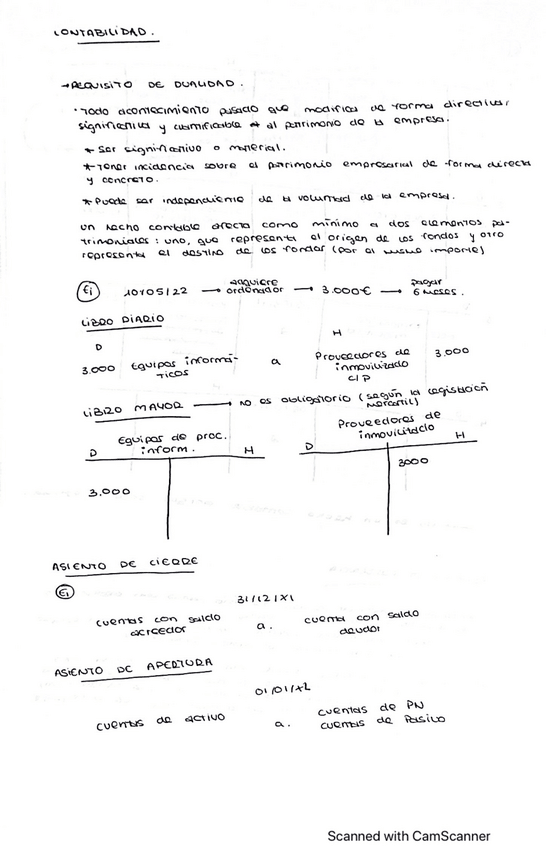 CONTABILIDAD.
→ REQUISITO DE DUALIDAD.
· Todo acontecimiento pasado que modifica de forma directa,
significativa y cuantificable al patrimonio de la empresa.
* Ser significativo o material.
* Tener incidencia sobre el patrimonio empresarial de forma directa
y concreto.
* Puede ser independiente de la voluntad de la empresa.
Un hecho contable afecta como mínimo a dos elementos pa-
trimoniales: uno, que representa el origen de los fondos y otro
representa el destino de los fondos (por el mismo importe)
Ej 10/05/22 → adquiere ordenador → 3.000€ → pagar 6 meses.
LIBRO DIARIO
D H
3.000 Equipos informá-
ticos a Proveedores de
inmovilizado
c/p 3.000
LIBRO MAYOR → No es obligatorio (según la legislación
mercantil)
Equipos de proc.
inform.
D H
3.000
Proveedores de
inmovilizado
D H
3000
ASIENTO DE CIERRE
Ej
31/12/X1
cuentas con saldo
acreedor a. cuenta con saldo
deudor
ASIENTO DE APERTURA
01/01/X2
cuentas de activo a. cuentas de PN
cuentas de Pasivo
Scanned with CamScanner